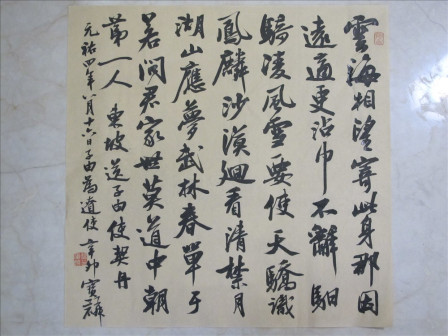 雲海相望寄此身那因
遠適更沾巾不辭馹
騎凌風雪要使天驕識
鳳麟沙漠迴看清禁月
湖山應夢武林春單于
若問君家世莫道中朝
第一人 東坡送子由使契丹
元祐四年八月十六日子由為遼使 辛卯 寶